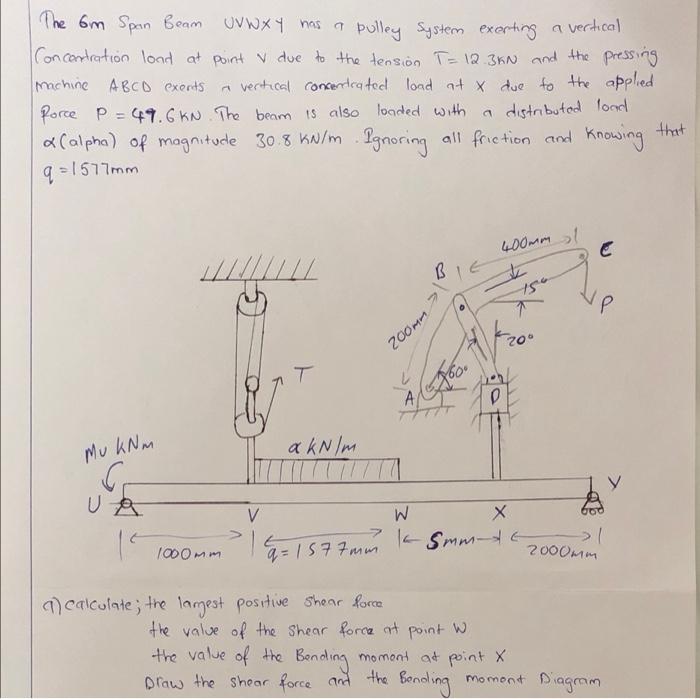 The 6m Span Beam UVWXY has a pulley System exerting a vertical
Concentration load at point V due to the tension T= 12.3KN and the pressing
machine ABCD exerts a vertical concentrated load at X due to the applied
Force P = 49.6KN. The beam is also loaded with a distributed load
α(alpha) of magnitude 30.8 KN/m. Ignoring all friction and knowing that
q = 1577mm
400mm
C
B
15°
P
200mm
20°
T
60°
A
D
Mu kNm
α kN/m
U
Y
V
W
X
1000mm
q = 1577mm
Smm
2000mm
a) calculate; the largest positive shear force
the value of the shear force at point W
the value of the Bending moment at point X
Draw the shear force and the Bending moment Diagram